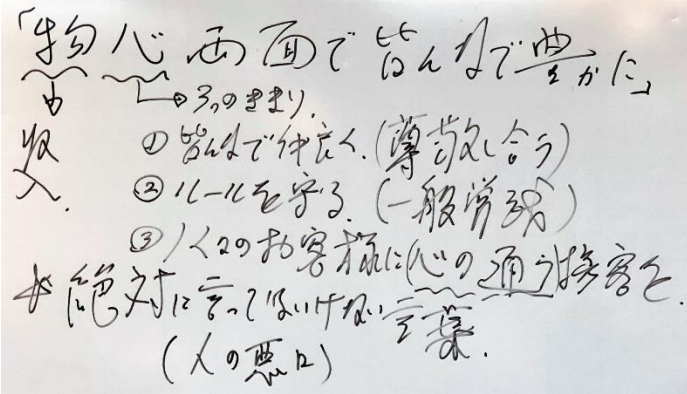 「物心両面で皆んなで豊かに」
↓ ↳3つのきまり.
収入. ①皆んなで仲良く.(尊敬し合う)
②ルールを守る.(一般常識)
③1人1人のお客様に(心の通う)接客を.
※絶対に言ってはいけない言葉.
(人の悪口)